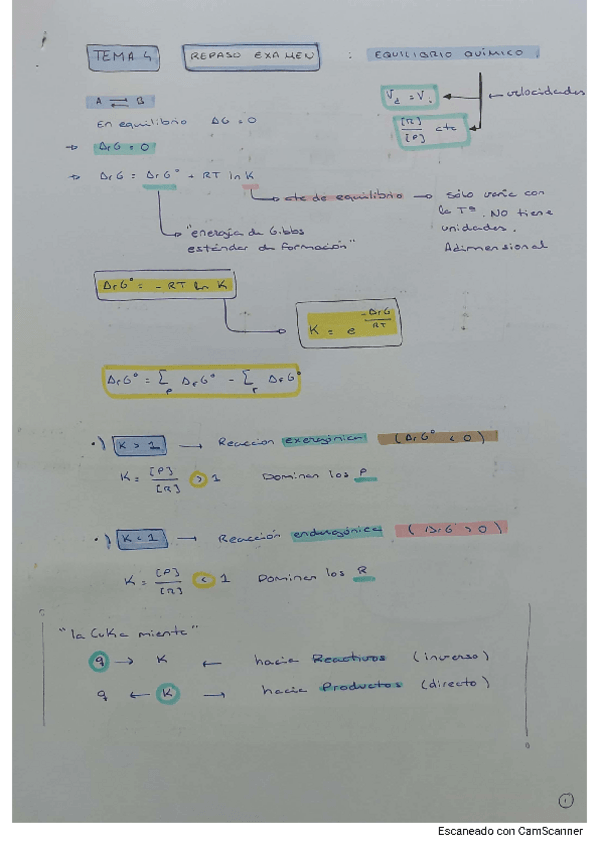 TEMA 4 REPASO EXAMEN : EQUILIBRIO QUÍMICO
A ⇌ B
Vd = Vi ← velocidades
En equilibrio ΔG = 0
[R]/[P] cte
→ ΔrG = 0
→ ΔrG = ΔrG° + RT ln K
cte de equilibrio → Sólo varía con
la Tª. NO tiene
unidades.
Adimensional
"energía de Gibbs
estándar de formación"
ΔrG° = - RT ln K
K = e^(-ΔrG/RT)
ΔrG° = Σp ΔfG° - Σr ΔfG°
·) K > 1 → Reacción exergónica (ΔrG° < 0)
K = [P]/[R] > 1 Dominan los P
·) K < 1 → Reacción endergónica (ΔrG° > 0)
K = [P]/[R] < 1 Dominan los R
"la CuKa miente"
q → K ← hacia Reactivos (inverso)
q ← K → hacia Productos (directo)
1
Escaneado con CamScanner